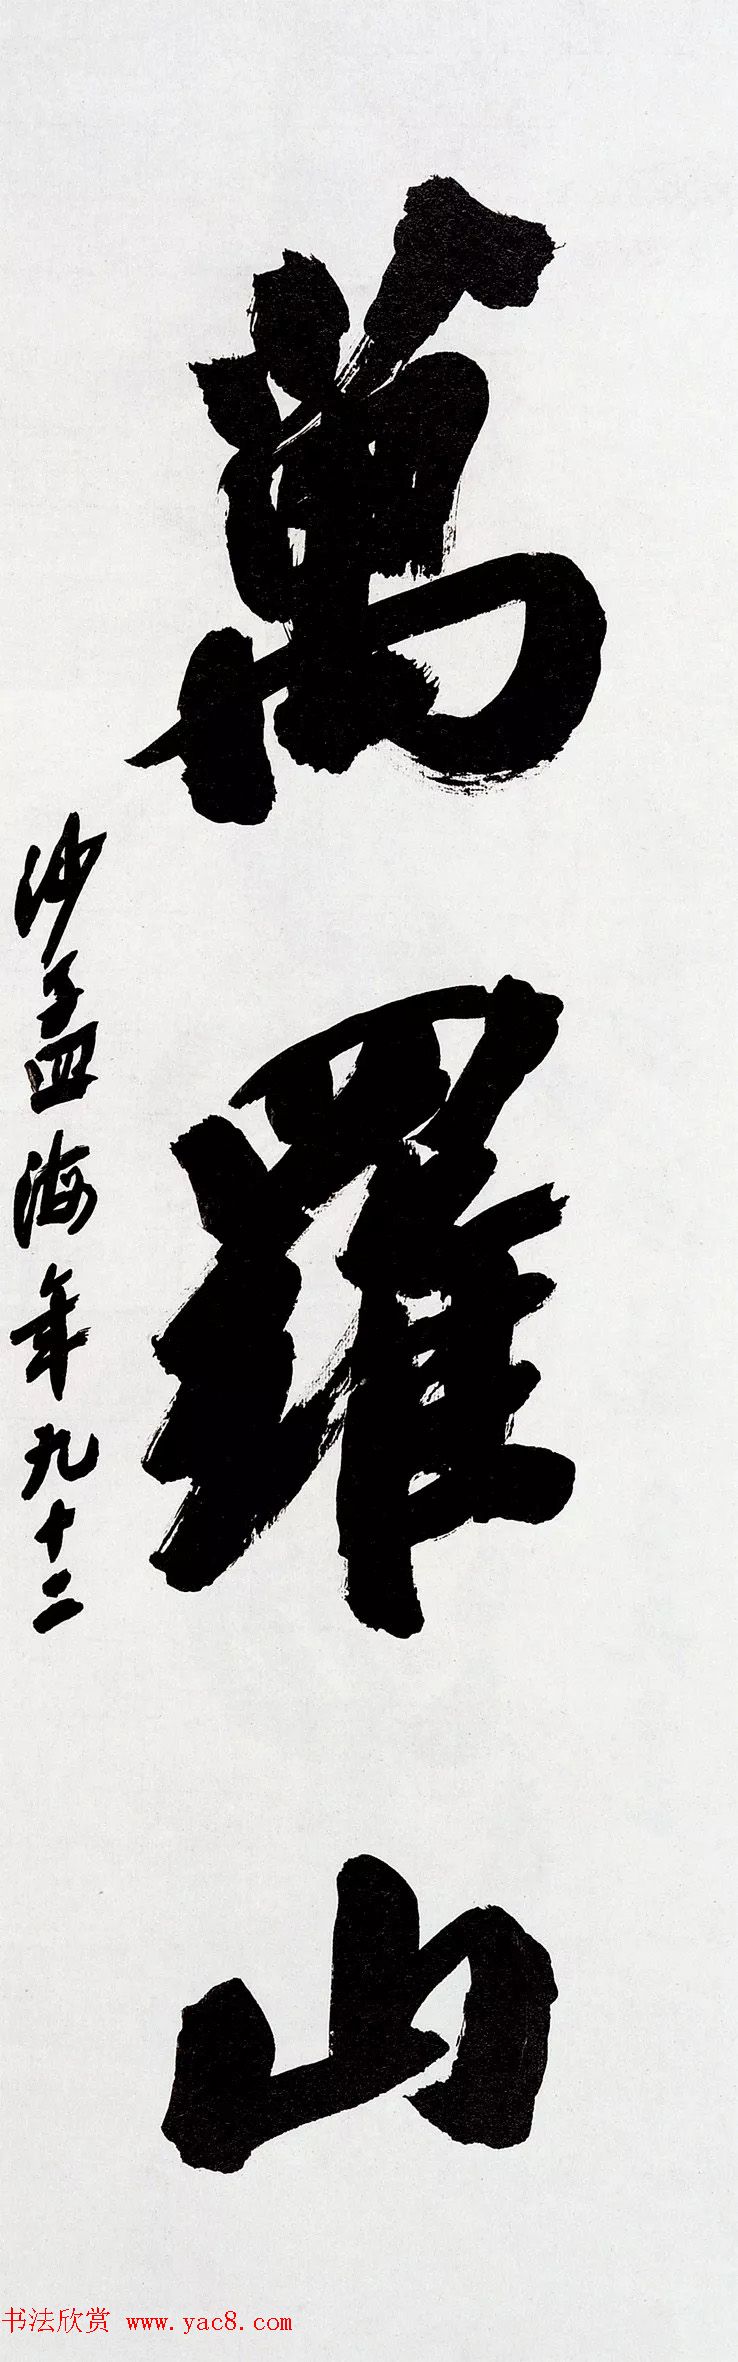 萬羅山
沙孟海年九十二
书法欣赏 www.yac8.com